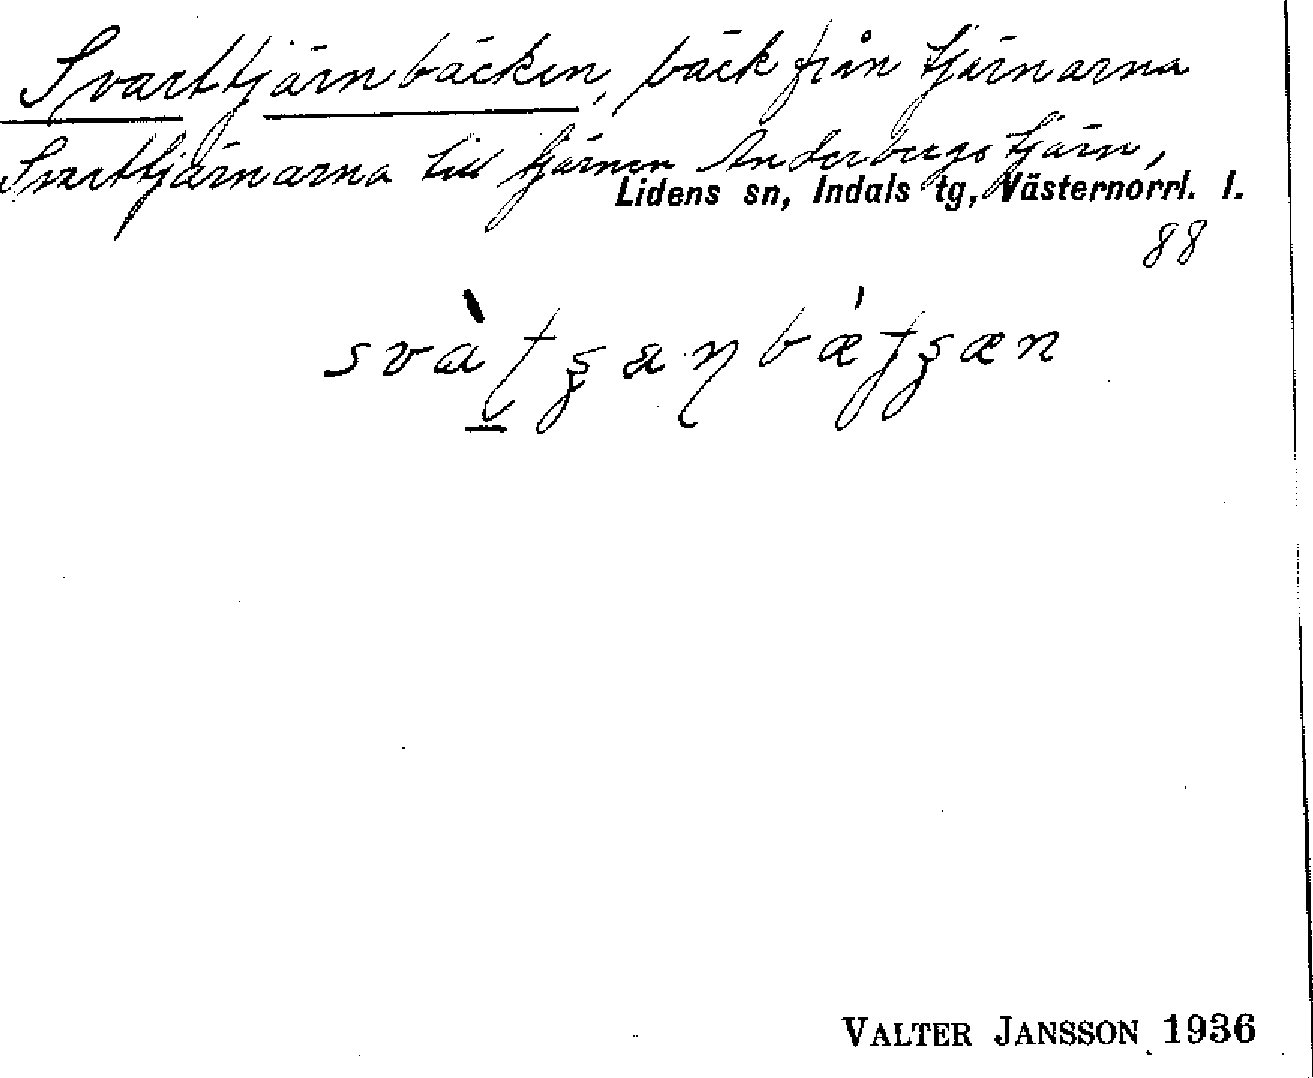 Svarttjärnbäcken, bäck från tjärnarna
Svarttjärnarna till tjärnen Anderbergstjärn,
Lidens sn, Indals tg, Västernorrl. l.
88
VALTER JANSSON 1936